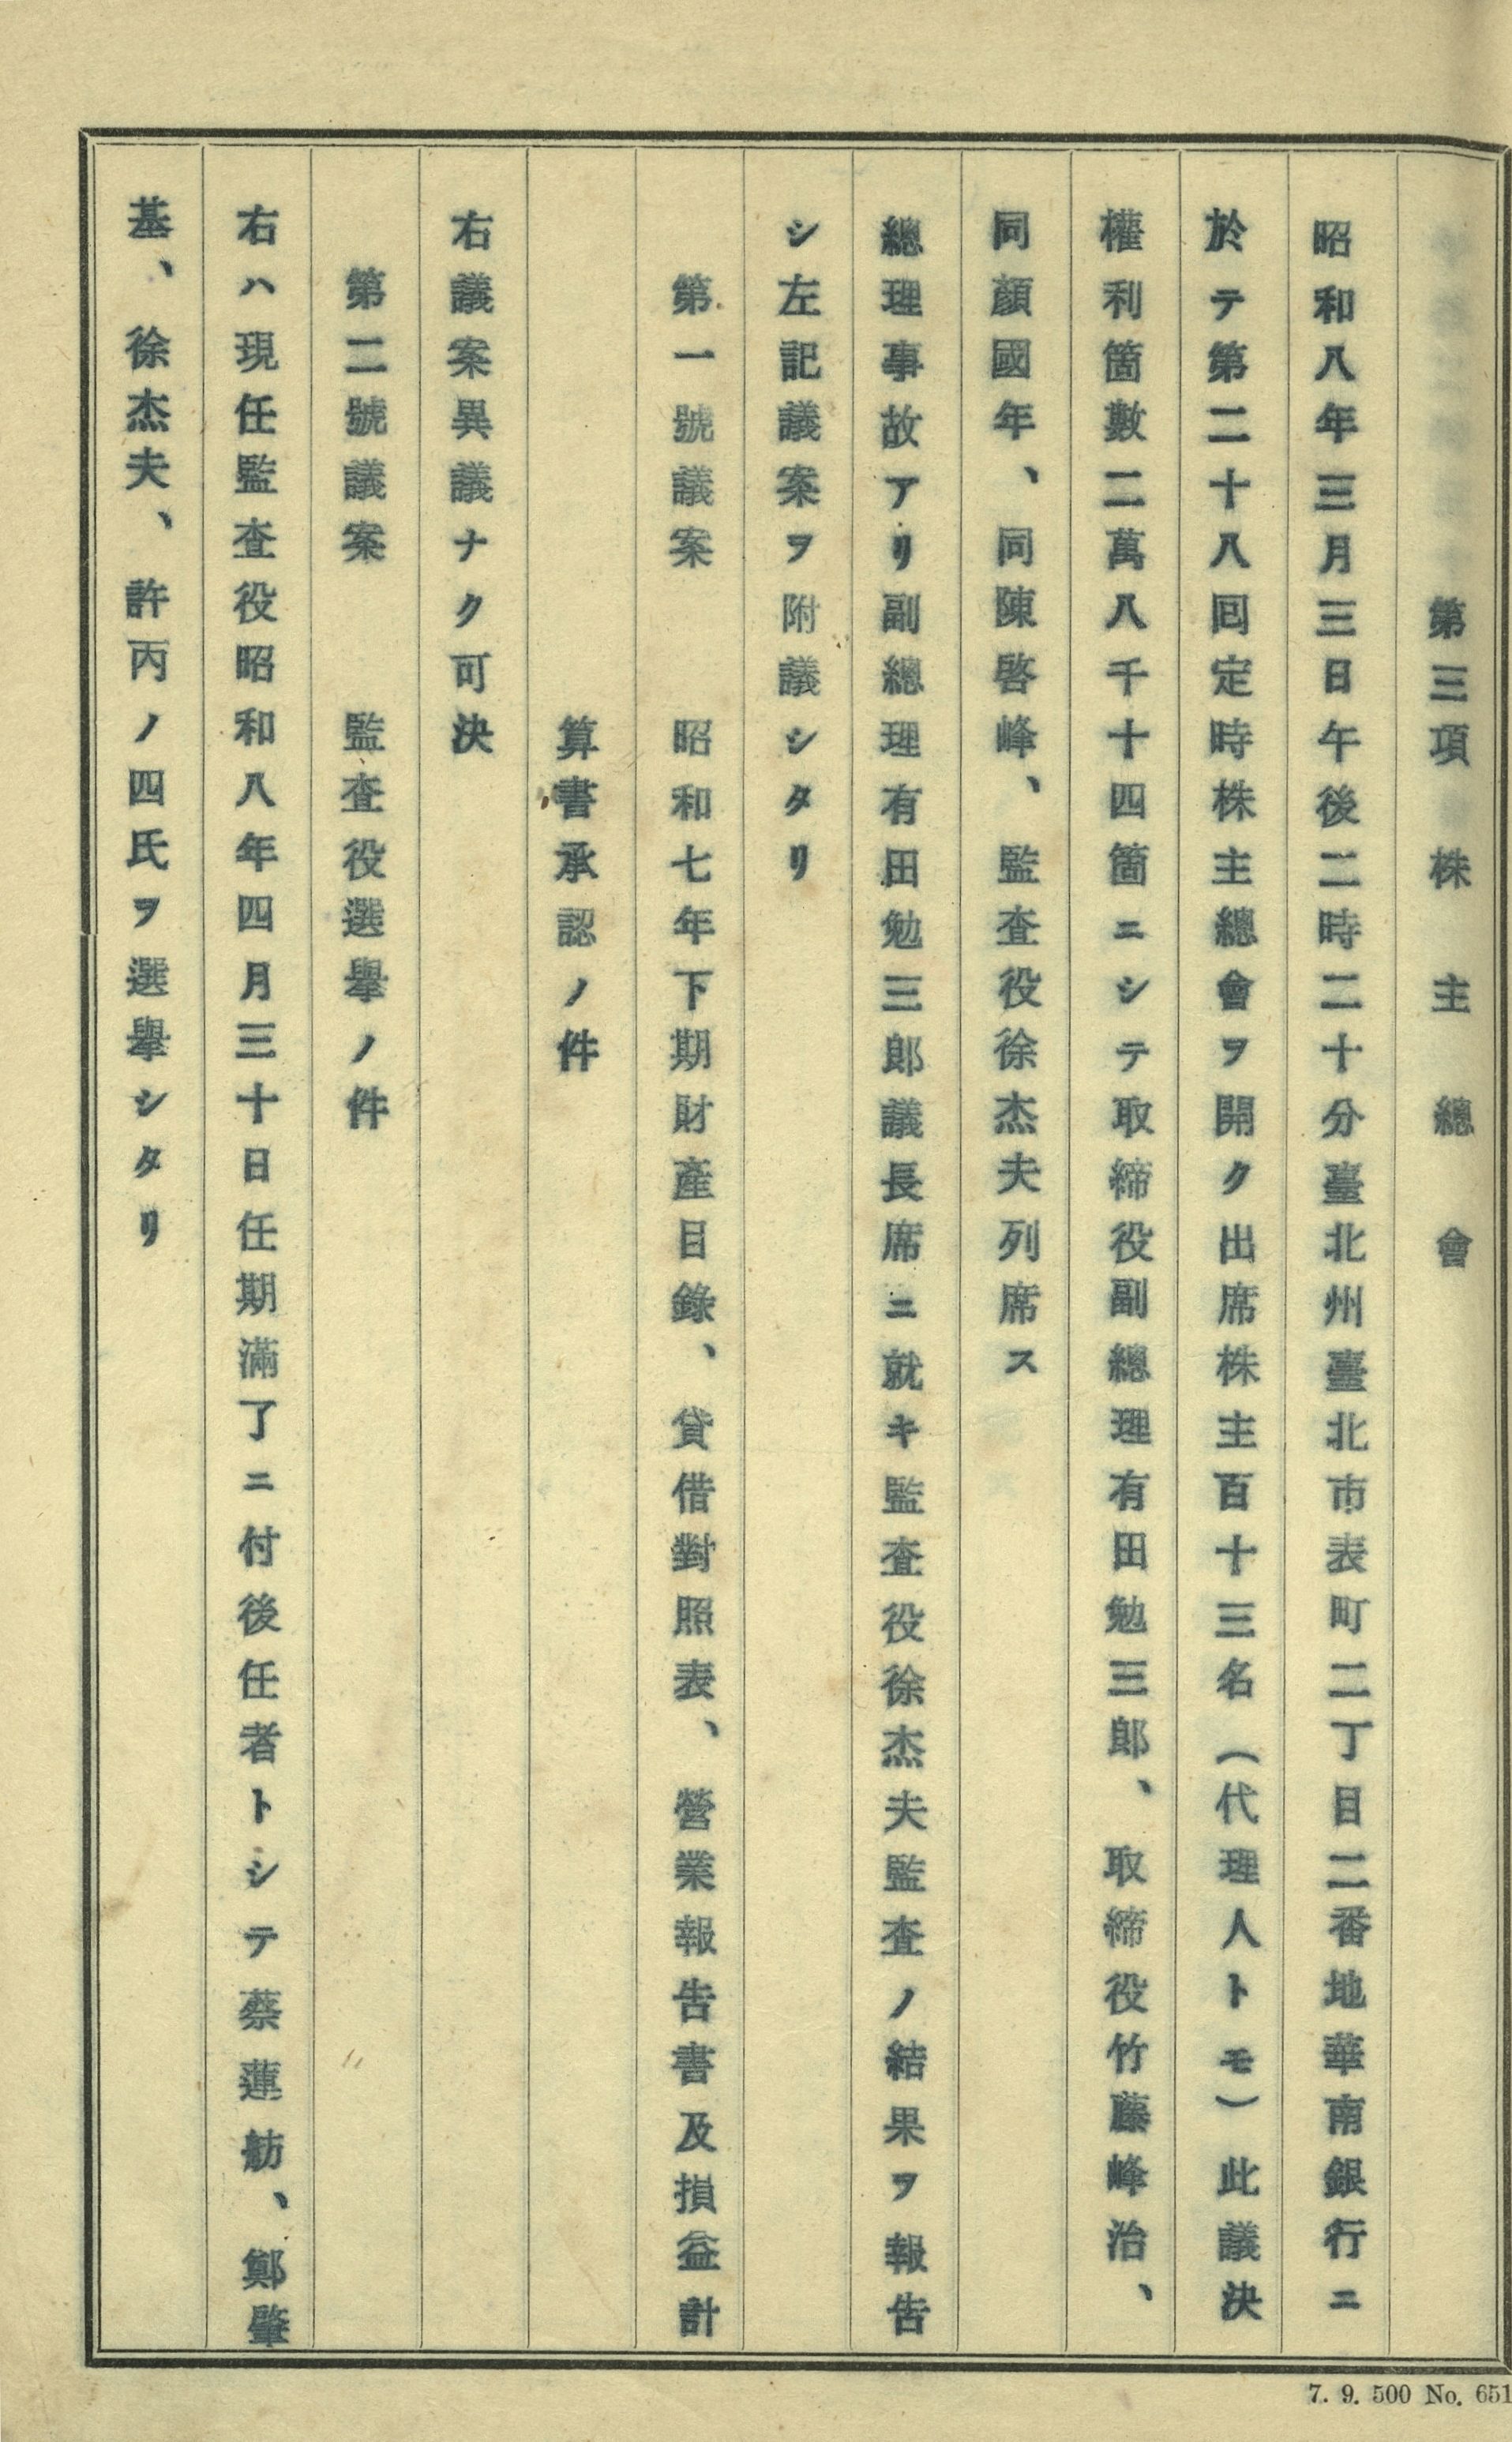 第三項　株主總會
昭和八年三月三日午後二時二十分臺北州臺北市表町二丁目二番地華南銀行ニ
於テ第二十八囘定時株主總會ヲ開ク出席株主百十三名（代理人トモ）此議決
權利箇數二萬八千十四箇ニシテ取締役副總理有田勉三郎、取締役竹藤峰治、
同顏國年、同陳啓峰、監査役徐杰夫列席ス
總理事故アリ副總理有田勉三郎議長席ニ就キ監査役徐杰夫監査ノ結果ヲ報告
シ左記議案ヲ附議シタリ
第一號議案　昭和七年下期財產目錄、貸借對照表、營業報告書及損益計
算書承認ノ件
右議案異議ナク可決
第二號議案　監査役選擧ノ件
右ハ現任監査役昭和八年四月三十日任期滿了ニ付後任者トシテ蔡蓮舫、鄭肇
基、徐杰夫、許丙ノ四氏ヲ選擧シタリ
7. 9. 500 No. 651